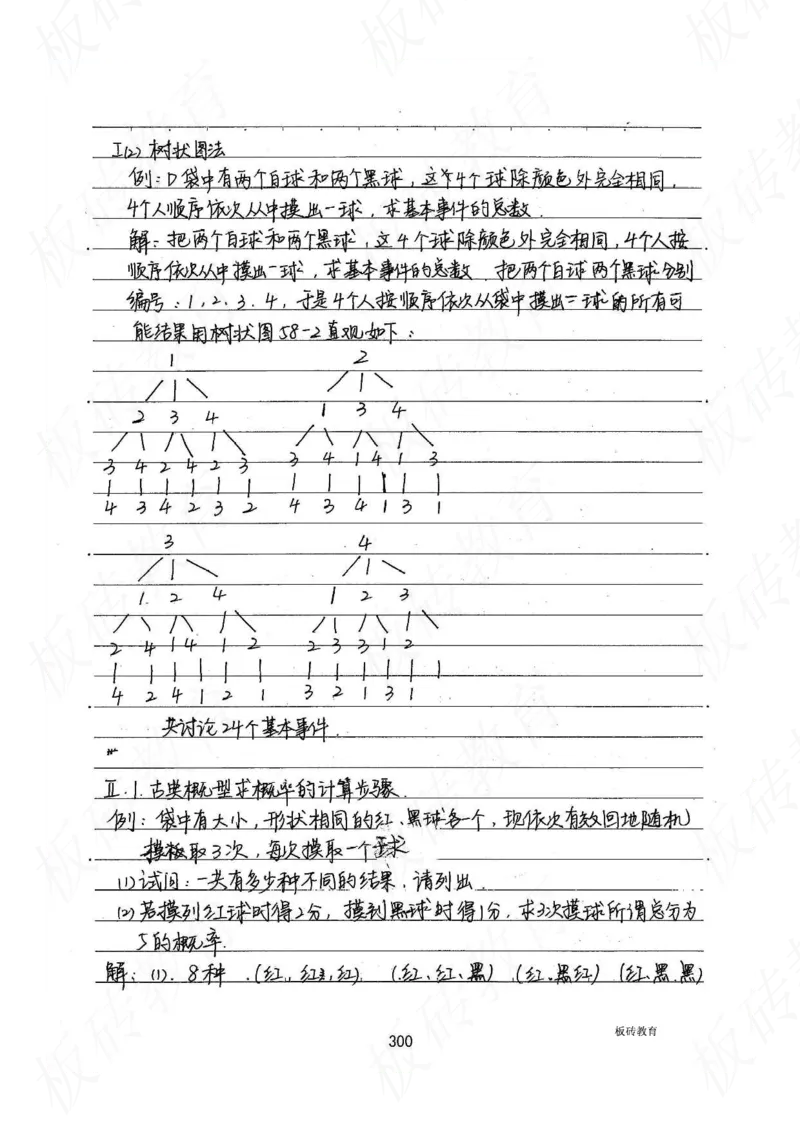 I(2) 树状图法
例:D 袋中有两个白球和两个黑球,这4个球除颜色外完全相同,
4个人顺序依次从中摸出一球,求基本事件的总数.
解:把两个白球和两个黑球,这4个球除颜色外完全相同,4个人按
顺序依次从中摸出一球,求基本事件的总数.把两个白球两个黑球分别
编号:1,2、3、4,于是4个人按顺序依次从袋中摸出二球的所有可
能结果用树状图58-2直观如下:
1 2
2 3 4 1 3 4
3 4 2 4 2 3 3 4 1 4 1 3
4 3 4 2 3 2 4 3 4 1 3 1
3 4
1 2 4 1 2 3
2 4 1 4 1 2 2 3 3 1 2
4 2 4 1 2 1 3 2 1 3 1
共讨论24个基本事件.
II.1.古典概型求概率的计算步骤.
例:袋中有大小,形状相同的红、黑球各一个,现依次有放回地随机
取3次,每次摸取一个球
(1)试问:一共有多少种不同的结果、请列出.
(2)若摸到红球时得2分,摸到黑球时得1分,求3次摸球所谓总分为
5的概率.
解:(1).8种.(红,红,红).(红、红、黑).(红、黑红)(红、黑、黑)
板砖教育
300